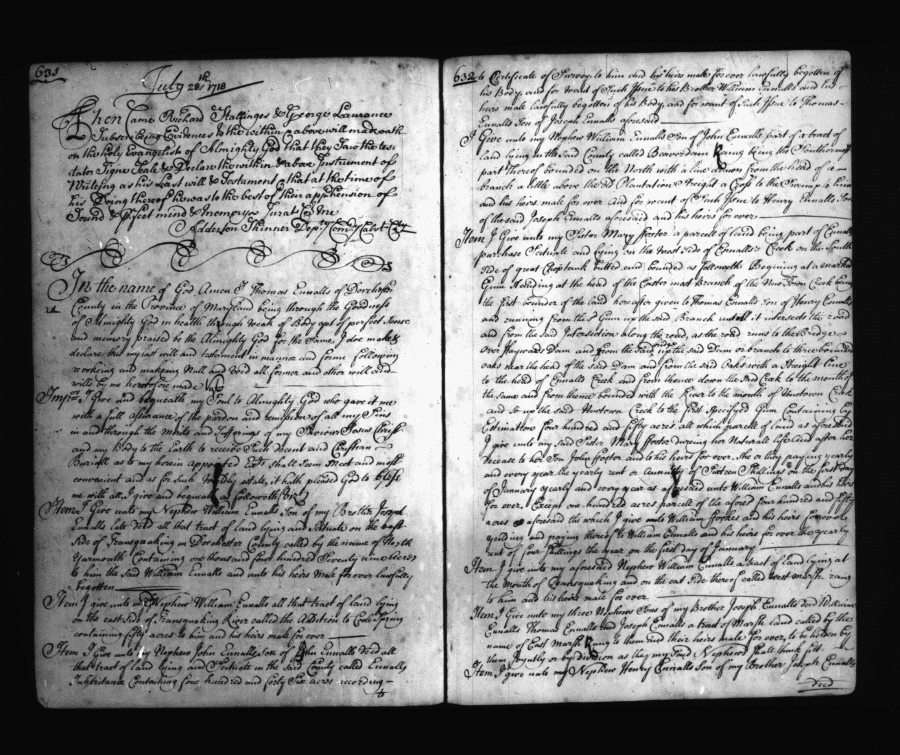 631
July 28th 1718
Then Came Richard Stallings & George Laurance
Subscribing Evidences to the within & above will made oath
on the holy Evangelist of Almighty God that they Saw the tes
tator Signe Seale & Declare the within & above Instrument of
Writeing as his Last will & Testament & that at the time of
his Doing thereof he was to the best of their apprehension of
Sound & Disposing mind & memory Jurat Cor me
Adderton Skinner Dep. Com
In the name of God Amen I Thomas Ennalls of Dorchester
County in the Province of Maryland being through the Goodness
of Almighty God in health though weak of Body yet of perfect Sense
and memory praised be the Almighty God for the Same, I doe make &
declare this my last will and testament in manner and forme following
revoking and making Null and Void all former and other will and
wills by me heretofore made
I give and bequeath my Soul to Almighty God who gave it me
with a full assurance of the pardon and remission of all my Sins
in and through the Merits and Sufferings of my Saviour Jesus Christ
and my Body to the Earth to receive Such decent and Christian
Buriall as to my herein appointed Exts shall Seem Meet and most
convenient and as for Such worldly estate, it hath pleased God to bless
me with all, I give and bequeath as followeth
Item I Give unto my Nephew William Ennalls Son of my Brother Joseph
Ennalls late Decd all that tract of land lying and Scituate on the East
Side of Transquaking in Dorchester County called by the name of North
Yarmouth Containing one thousand and four hundred Seventy nine Acres
to him the Said William Ennalls and unto his heirs Male for ever lawfully
begotten
Item I give unto my Nephew William Ennalls all that tract of land lying
on the east Side of Transquaking River called the Addition to Cold Spring
containing fifty acres to him and his heirs male for ever
Item I Give unto my Nephew John Ennalls Son of John Ennalls Decd all
that tract of land lying and Scituate in the Said County called Ennalls
Inheritance Containing four hundred and forty Six acres according
to
632 to Certificate of Survey to him and his heirs male for ever lawfully begotten of
his Body, and for want of Such Issue to his Brother William Ennalls and his
heirs male lawfully begotten of his Body and for want of Such Issue to Thomas
Ennalls Son of Joseph Ennalls aforesaid
I Give unto my Nephew William Ennalls Son of John Ennalls part of a tract of
land lying in the said County called Beaverdam being the Southermost
part thereof bounded on the North with a line drawn from the head of a
branch a little above the Plantation Streight a Cross to the Swamp to him
and his heirs male for ever and for want of Such Issue to Henry Ennalls Son
of the said Joseph Ennalls aforesaid and his heirs for ever
Item I Give unto my Sister Mary foster a parcele of land being part of Ennalls
purchase Scituate and lying on the West Side of Ennalls Creek on the South
Side of great Choptank butted and bounded as followeth Begining at a marked
Gum Standing at the head of the Easter most Branch of the New Town Creek being
the first bounder of the land here after given to Thomas Ennalls Son of Henry Ennalls
and running from the Gum up the said Branch untill it intersects the road
and from the said Intersection along the road, as the road runs to the Bridge
Over Haywards Dam and from the said up the said Dam or branch to three bounded
oaks near the head of the Said Dam and from the said Oaks with a Streight line
to the head of Ennalls Creek and from thence down the said Creek to the mouth of
the same and from thence bounded with the River to the mouth of Newtown Creek
and So up the said Newtown Creek to the first Specifyed Gum Containing by
Estimation four hundred and fifty acres all which parcele of land as aforesaid
I give unto my Said Sister Mary foster dureing her Naturall life and after her
decease to her Son John foster and to his heirs for ever, She or they paying yearly
and every year the yearly rent or Annuity of Sixteen Shillings on the first day
of January yearly and every year as aforesaid unto William Ennalls and his heirs
for ever. Except one hundred acres parcele of the aforesd four hundred and fifty
acres aforesaid the which I give unto William ffookes and his heirs for ever
yeilding and paying thereof to William Ennalls and his heirs for ever the yearly
rent of four Shillings the year on the first day of January
Item I give unto my aforesaid Nephew William Ennalls a tract of land lying at
the Mouth of Transquaking and on the east Side thereof called West Marsh
to him and his heirs male for ever
Item I Give unto my three Nephews Sons of my Brother Joseph Ennalls Decd William
Ennalls Thomas Ennalls and Joseph Ennalls a tract of Marsh land called by the
name of East Marsh to them and their heirs male for ever, to be holden by
them Joyntly or by division as they my Said Nephews Shall think fitt
Item I give unto my Nephew Henry Ennalls Son of my Brother Joseph Ennalls
Decd